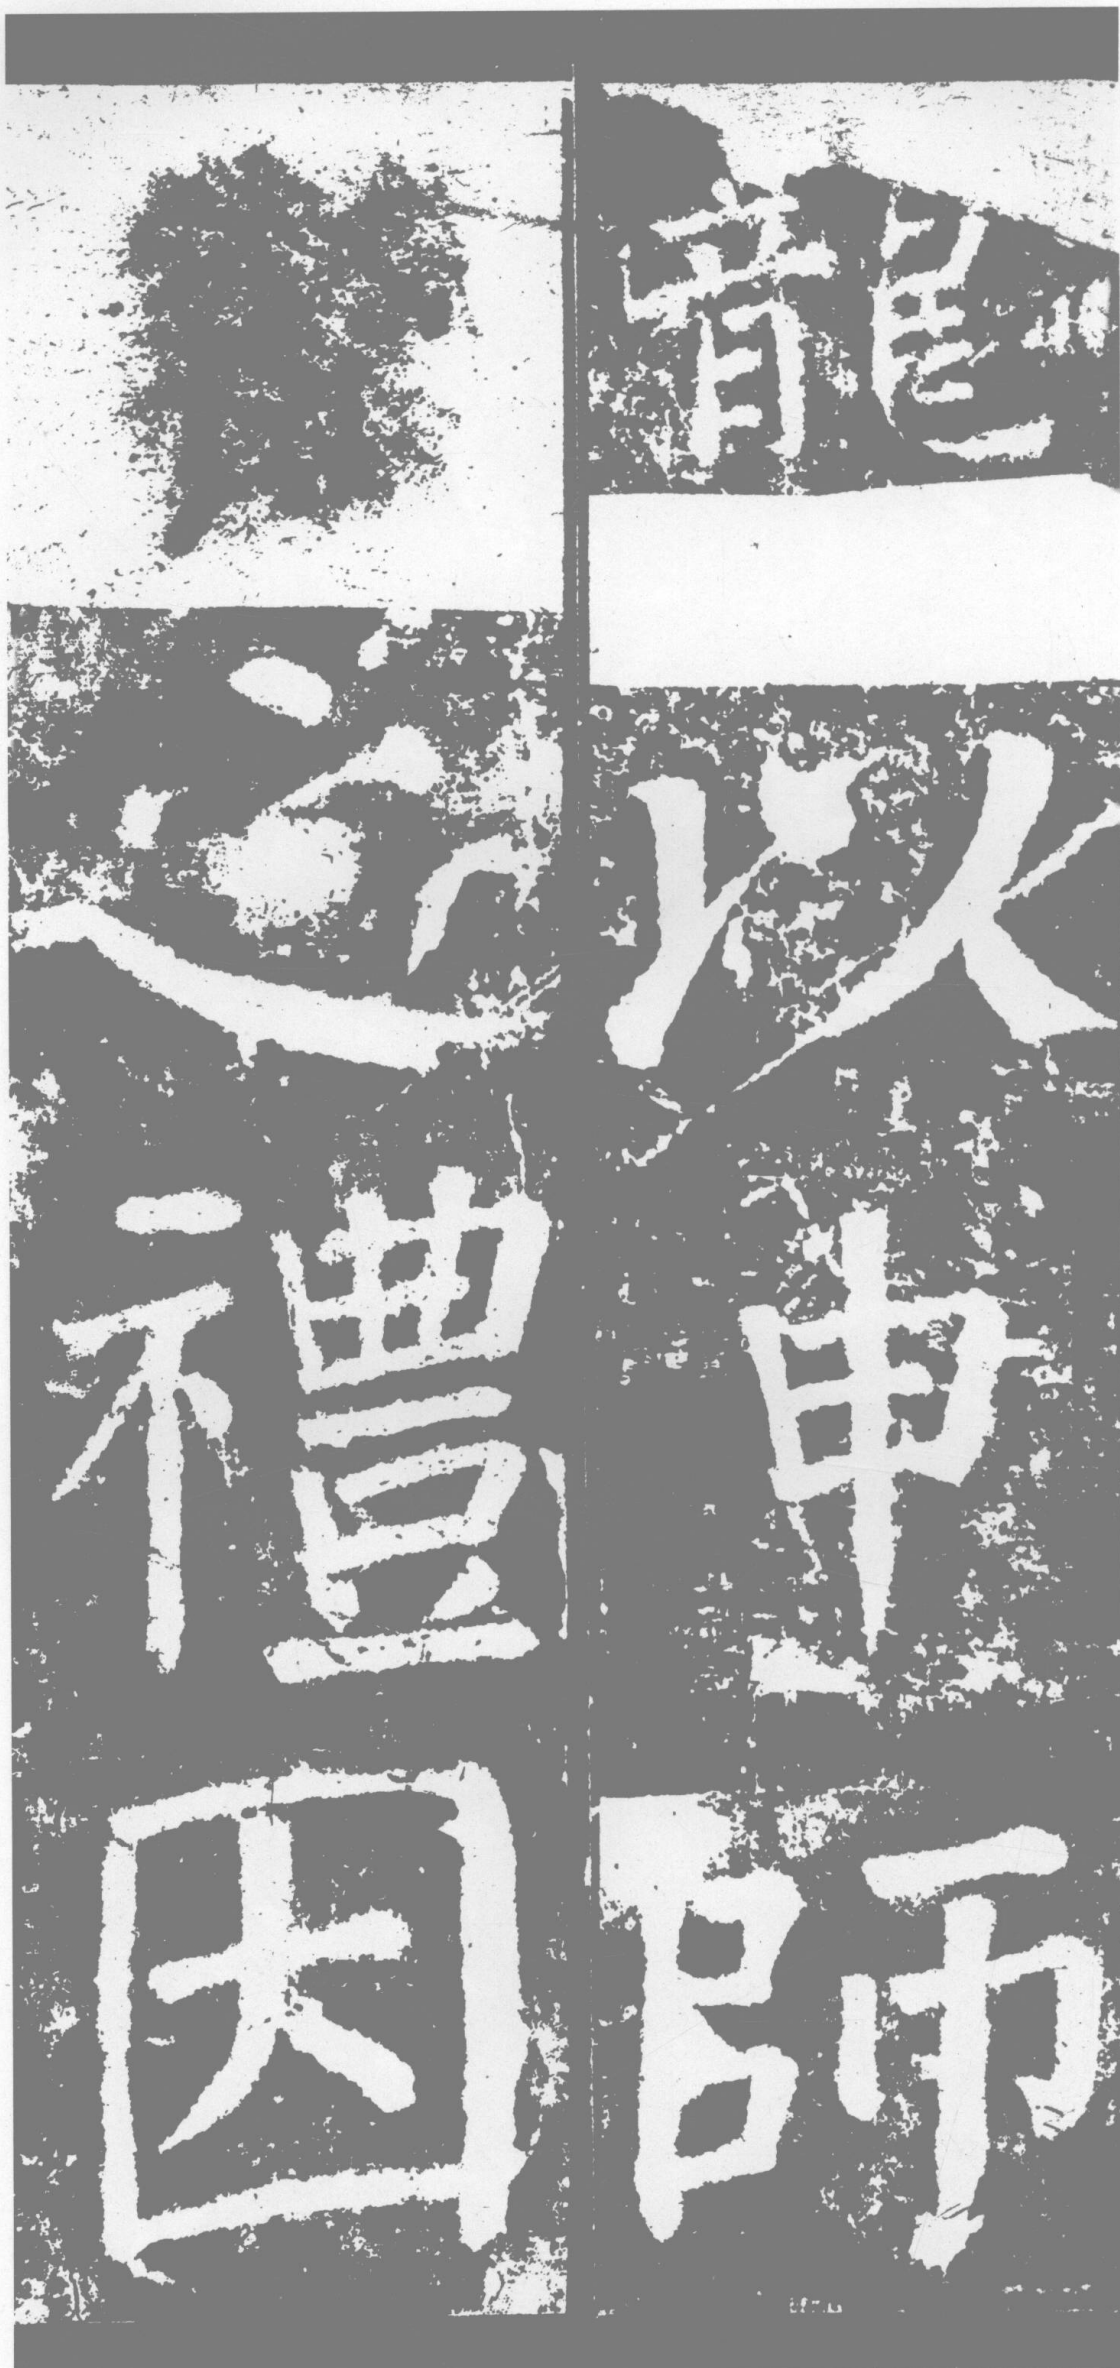 龍以申師
之禮因